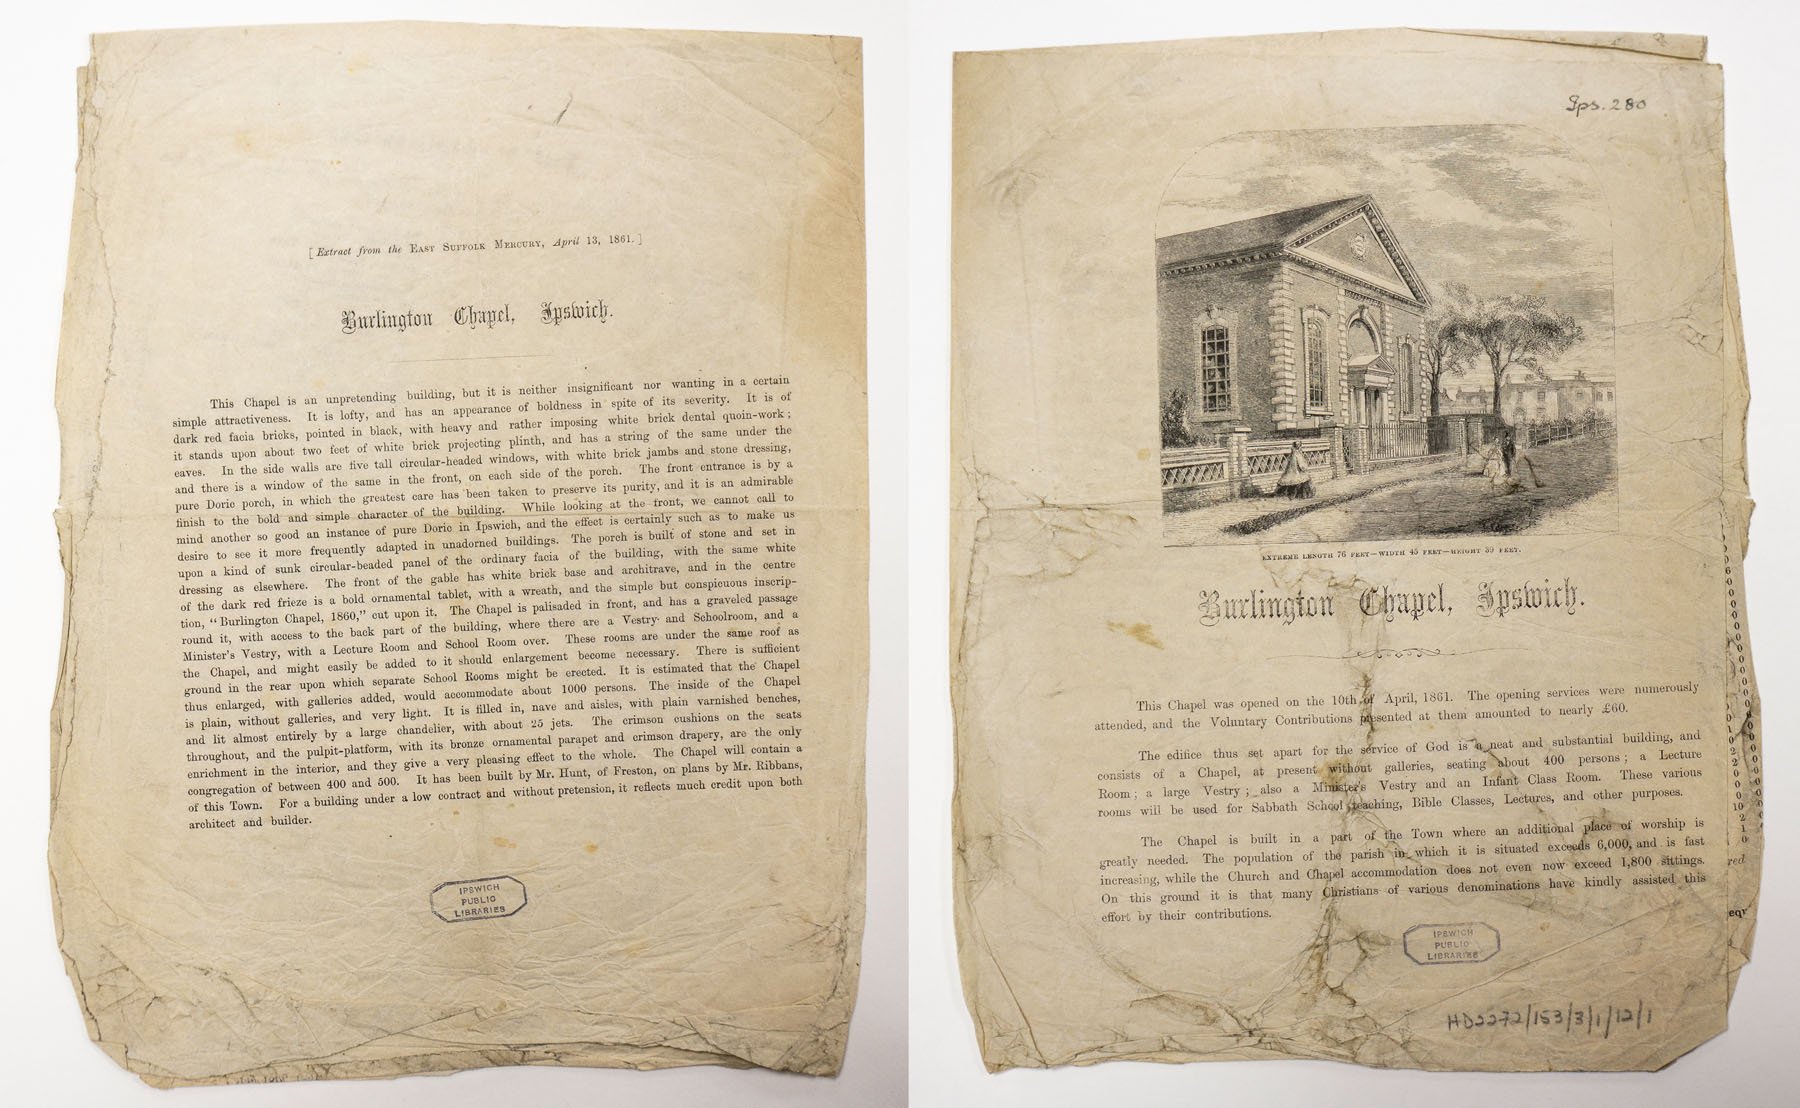 [Extract from the EAST SUFFOLK MERCURY, April 13, 1861.]
Burlington Chapel, Ipswich.
This Chapel is an unpretending building, but it is neither insignificant nor wanting in a certain
simple attractiveness. It is lofty, and has an appearance of boldness in spite of its severity. It is of
dark red facia bricks, pointed in black, with heavy and rather imposing white brick dental quoin-work;
it stands upon about two feet of white brick projecting plinth, and has a string of the same under the
eaves. In the side walls are five tall circular-headed windows, with white brick jambs and stone dressing,
and there is a window of the same in the front, on each side of the porch. The front entrance is by a
pure Doric porch, in which the greatest care has been taken to preserve its purity, and it is an admirable
finish to the bold and simple character of the building. While looking at the front, we cannot call to
mind another so good an instance of pure Doric in Ipswich, and the effect is certainly such as to make us
desire to see it more frequently adapted in unadorned buildings. The porch is built of stone and set in
upon a kind of sunk circular-beaded panel of the ordinary facia of the building, with the same white
dressing as elsewhere. The front of the gable has white brick base and architrave, and in the centre
of the dark red frieze is a bold ornamental tablet, with a wreath, and the simple but conspicuous inscrip-
tion, "Burlington Chapel, 1860," cut upon it. The Chapel is palisaded in front, and has a graveled passage
round it, with access to the back part of the building, where there are a Vestry and Schoolroom, and a
Minister's Vestry, with a Lecture Room and School Room over. These rooms are under the same roof as
the Chapel, and might easily be added to it should enlargement become necessary. There is sufficient
ground in the rear upon which separate School Rooms might be erected. It is estimated that the Chapel
thus enlarged, with galleries added, would accommodate about 1000 persons. The inside of the Chapel
is plain, without galleries, and very light. It is filled in, nave and aisles, with plain varnished benches,
and lit almost entirely by a large chandelier, with about 25 jets. The crimson cushions on the seats
throughout, and the pulpit-platform, with its bronze ornamental parapet and crimson drapery, are the only
enrichment in the interior, and they give a very pleasing effect to the whole. The Chapel will contain a
congregation of between 400 and 500. It has been built by Mr. Hunt, of Freston, on plans by Mr. Ribbans,
of this Town. For a building under a low contract and without pretension, it reflects much credit upon both
architect and builder.
IPSWICH
PUBLIC
LIBRARIES
Ips. 280
EXTREME LENGTH 76 FEET—WIDTH 45 FEET—HEIGHT 39 FEET.
Burlington Chapel, Ipswich.
This Chapel was opened on the 10th of April, 1861. The opening services were numerously
attended, and the Voluntary Contributions presented at them amounted to nearly £60.
The edifice thus set apart for the service of God is a neat and substantial building, and
consists of a Chapel, at present without galleries, seating about 400 persons; a Lecture
Room; a large Vestry; also a Minister's Vestry and an Infant Class Room. These various
rooms will be used for Sabbath School teaching, Bible Classes, Lectures, and other purposes.
The Chapel is built in a part of the Town where an additional place of worship is
greatly needed. The population of the parish in which it is situated exceeds 6,000, and is fast
increasing, while the Church and Chapel accommodation does not even now exceed 1,800 sittings.
On this ground it is that many Christians of various denominations have kindly assisted this
effort by their contributions.
IPSWICH
PUBLIC
LIBRARIES
HD2272/153/3/1/12/1